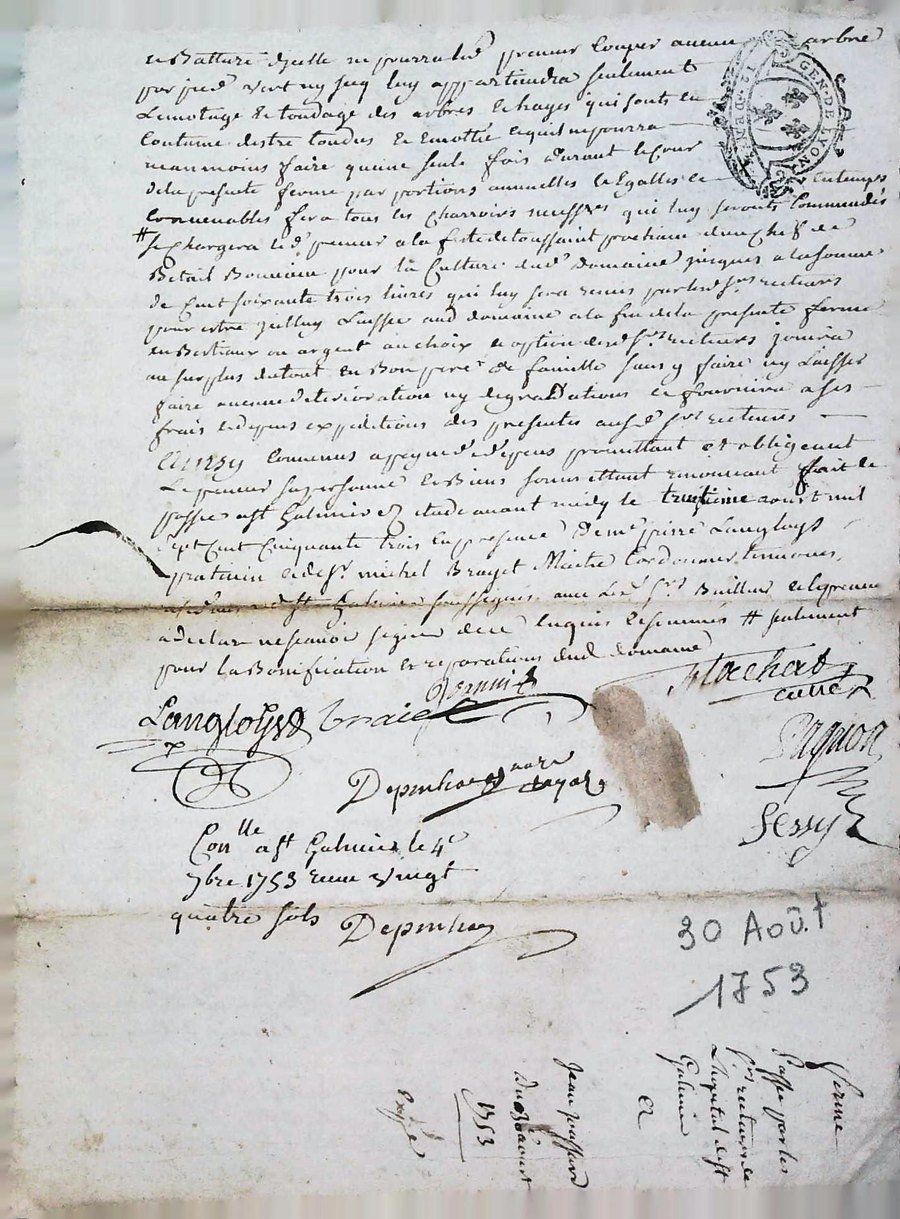 en Batture d'yelle ne pourra led preneur Couper aucun arbre
par pied vert ny seq luy appartiendra seulement
Lemotage & tondage des arbres & hayes qui sonts en
Coutume destre tondus et emotté lequel ne pourra
neanmoins faire qu'une seule fois durant le Cour
dela presente ferme par portions annuelles et Egalles et en temps
Convenables fera tous les charroirs qui luy seronts Commandés
# se Chargera led preneur a la feste de toussaint prochain d'un Chef de
Betail pour la Culture dud domaine jusques a la somme
de Cent soixante trois livres qui luy sera remis par lesd srs recteurs
pour estre Laissé aud domaine a la fin de la presente ferme
en Bestiaux ou argent au choix et option desd srs recteurs jouira
au surplus du tout en Bon pere de famille sans y faire ny Laisser
faire aucune deterioration ny degradations et fournira a ses
frais et depens expeditions des presentes ausd srs recteurs
Convenus a peyne de depens promettant et obligeant
Le preneur sa personne et Biens soumettant renonceant fait et
passé a st Galmier Etude avant midy le trentieme aoust mil
sept Cent Cinquante trois En presence de me pierre Langloys
praticien et de sr michel Brayet Maitre Cordonnier temoins
st Galmier soussignés avec Lesd srs Bailleurs et le preneur
a declaré ne scavoir signer de ce Enquis et sommés # seulement
pour la Bonification et reparations dud domaine
Flachat
curé
Langloys
Pugnon
Depinhac nore
royal
Sessy
Conlle a st Galmier le 4e
7bre 1753 recu vingt
quatre sols Depinhac
30 Août
1753
GEN. DE LYON
ferme
Passé par les
srs recteurs de
L'hopital de st
Galmier
a
Jean
du 30 aoust
1753